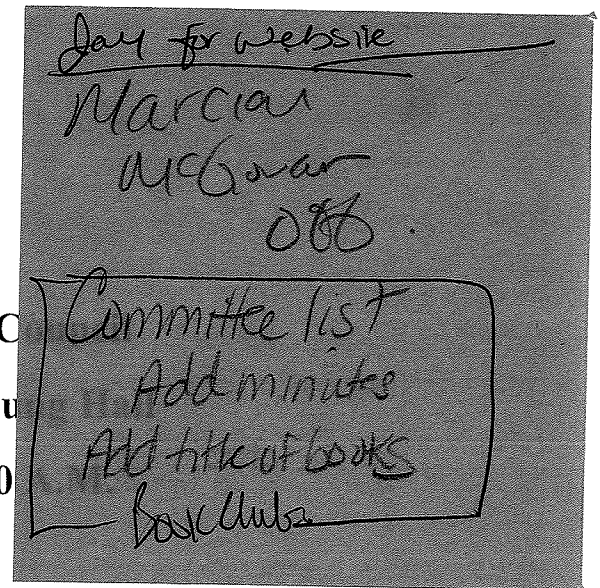 Jay for website
Marcia
McGovar
off.
Committee list
C
Add minutes
u
Add title of books
0
Book Club